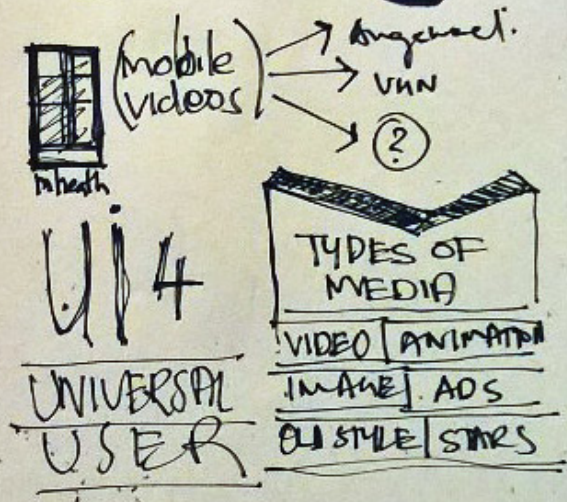 (mobile
videos)
VHN
?
mheath
Ui4
UNIVERSAL
USER
TYPES OF
MEDIA
VIDEO | ANIMATION
IMAGE | ADS
OLD STYLE | STARS